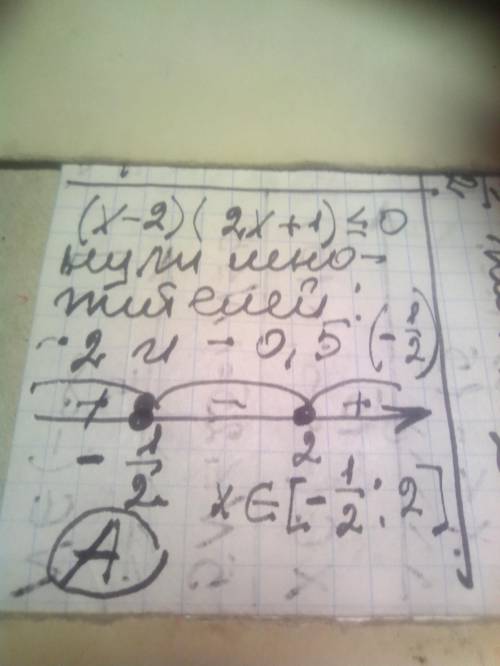 (x-2)(2x+1)≤0
нули мно-
жителей:
2 и -0,5 (-1/2)
+ - +
-1/2 2
x∈[-1/2; 2]
А